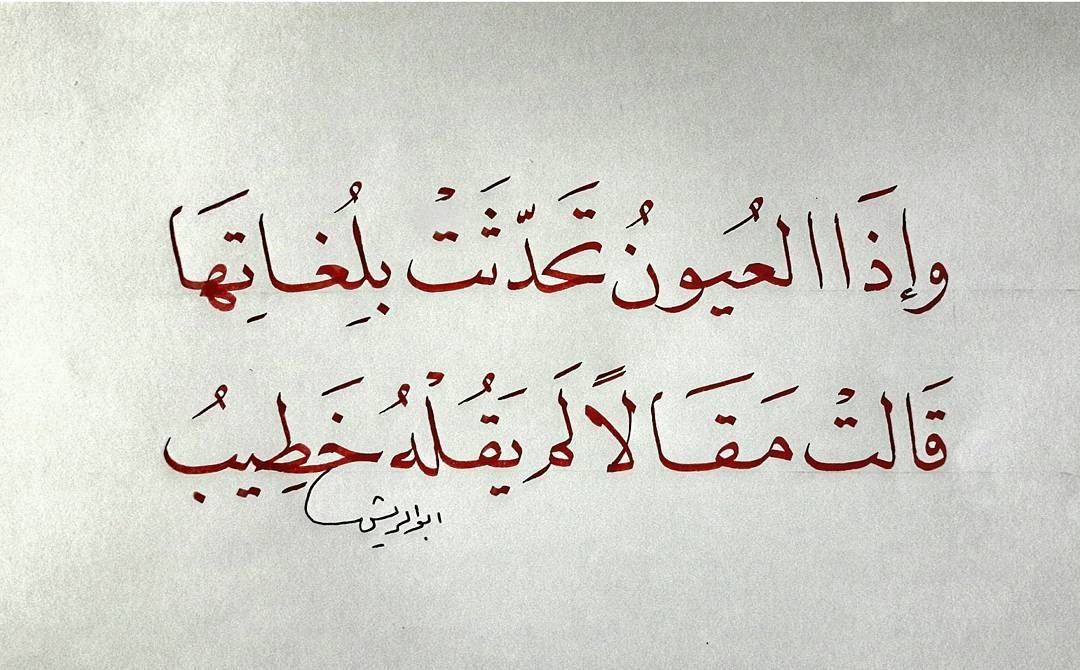 وإِذَا العُيونُ تَحَدّثَتْ بِلُغاتِهَا
قَالتْ مَقَالاً لَم يَقُلْهُ خَطِيبُ
ابوالريش